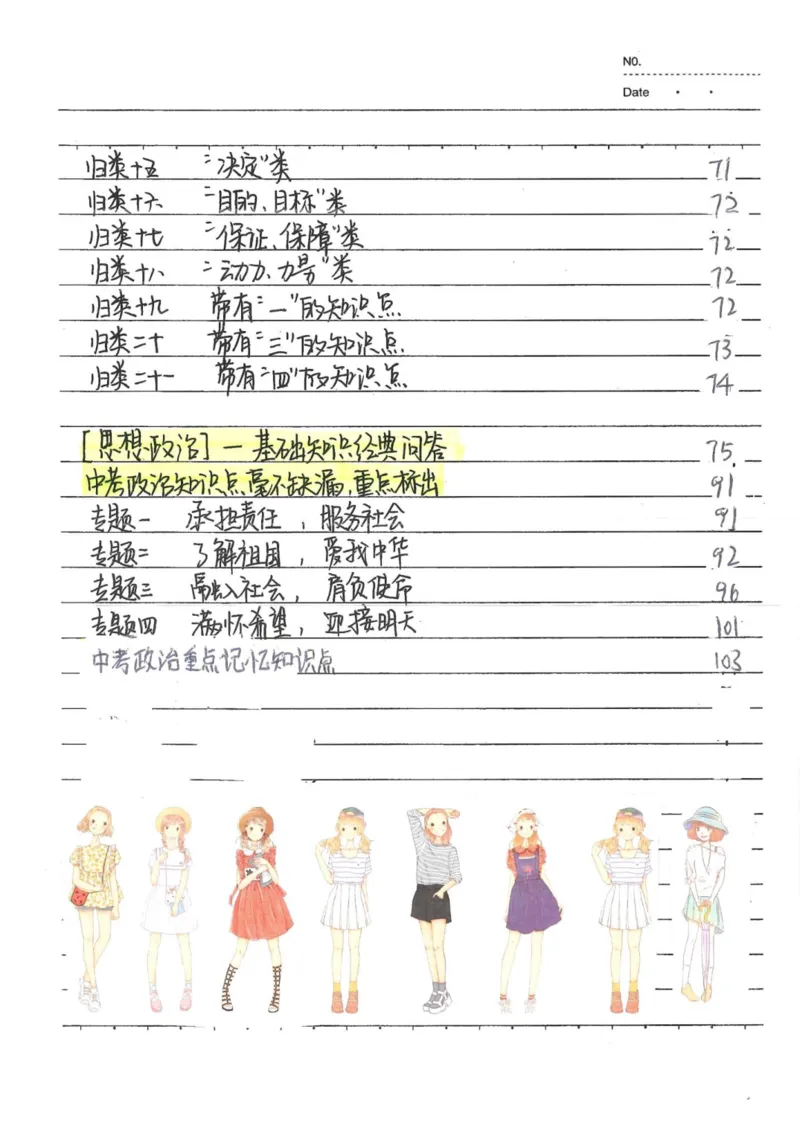 NO.
Date
归类十五 "决定"类 71
归类十六 "目的、目标"类 72
归类十七 "保证、保障"类 72
归类十八 "动力、力量"类 72
归类十九 带有"一"的知识点 72
归类二十 带有"三"的知识点 73
归类二十一 带有"四"的知识点 74
[思想政治]一基础知识经典问答 75
中考政治知识点毫不缺漏,重点标出 91
专题一 承担责任,服务社会 91
专题二 了解祖国,爱我中华 92
专题三 融入社会,肩负使命 96
专题四 满怀希望,迎接明天 101
中考政治重点记忆知识点 103